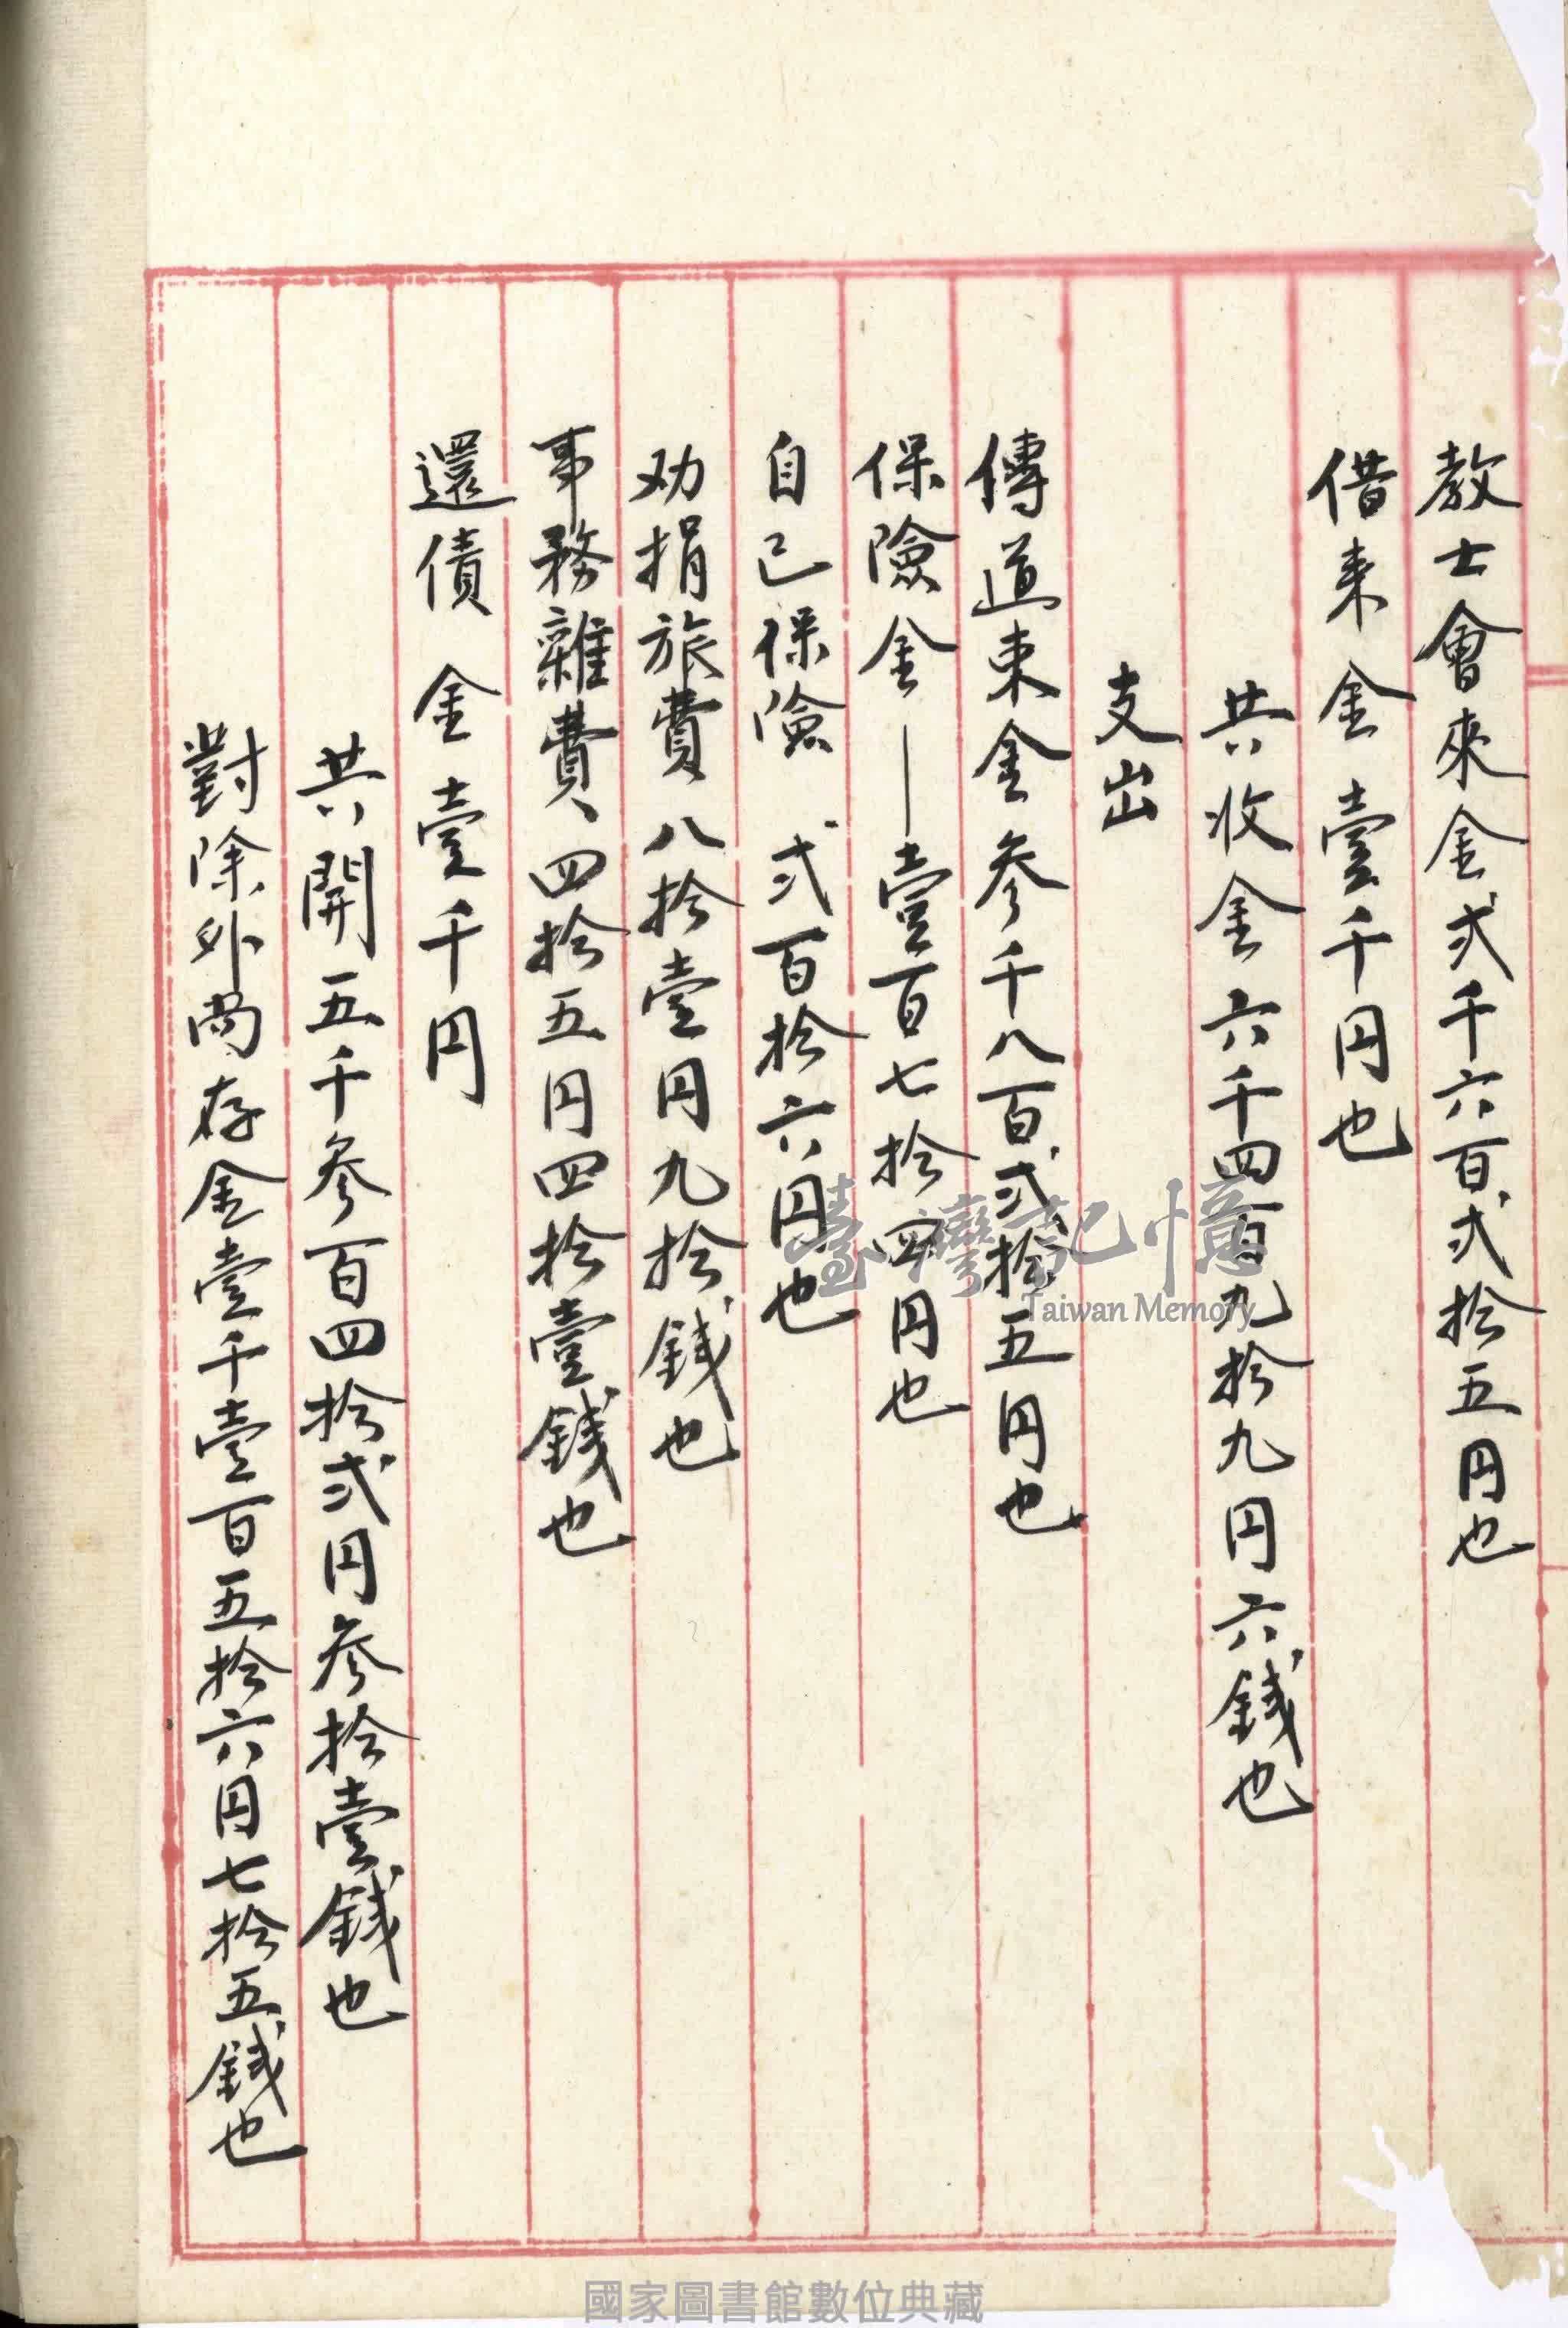 教士會來金弍千六百弍拾五円也
借来金壹千円也
共收金六千四百九拾九円六銭也
支出
傳道束金参千八百弍拾五円也
保險金—壹百七拾四円也
自己保險 弍百拾六円也
劝捐旅費八拾壹円九拾銭也
事務雜費、四拾五円四拾壹銭也
還債金壹千円
共開五千参百四拾弍円参拾壹銭也
對除外尚存金壹千壹百五拾六円七拾五銭也
臺灣記憶
Taiwan Memory
國家圖書館數位典藏